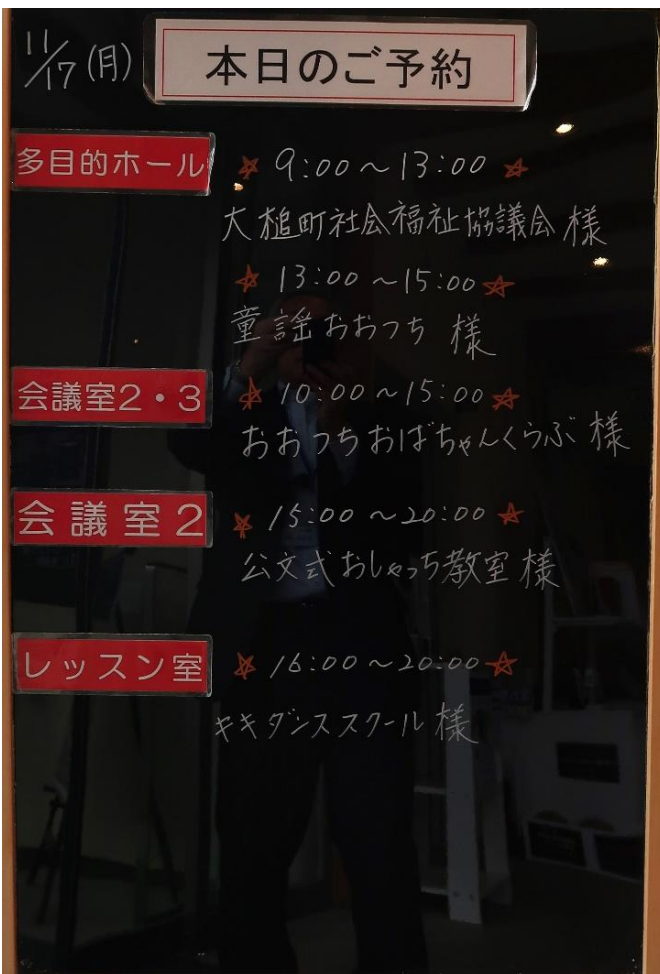 11/17(月)
本日のご予約
多目的ホール
☆ 9:00～13:00 ☆
大槌町社会福祉協議会 様
☆ 13:00～15:00 ☆
童謡おおつち 様
会議室2・3
☆ 10:00～15:00 ☆
おおつちおばちゃんくらぶ 様
会議室2
☆ 15:00～20:00 ☆
公文式おしゃっち教室 様
レッスン室
☆ 16:00～20:00 ☆
キキダンススクール 様